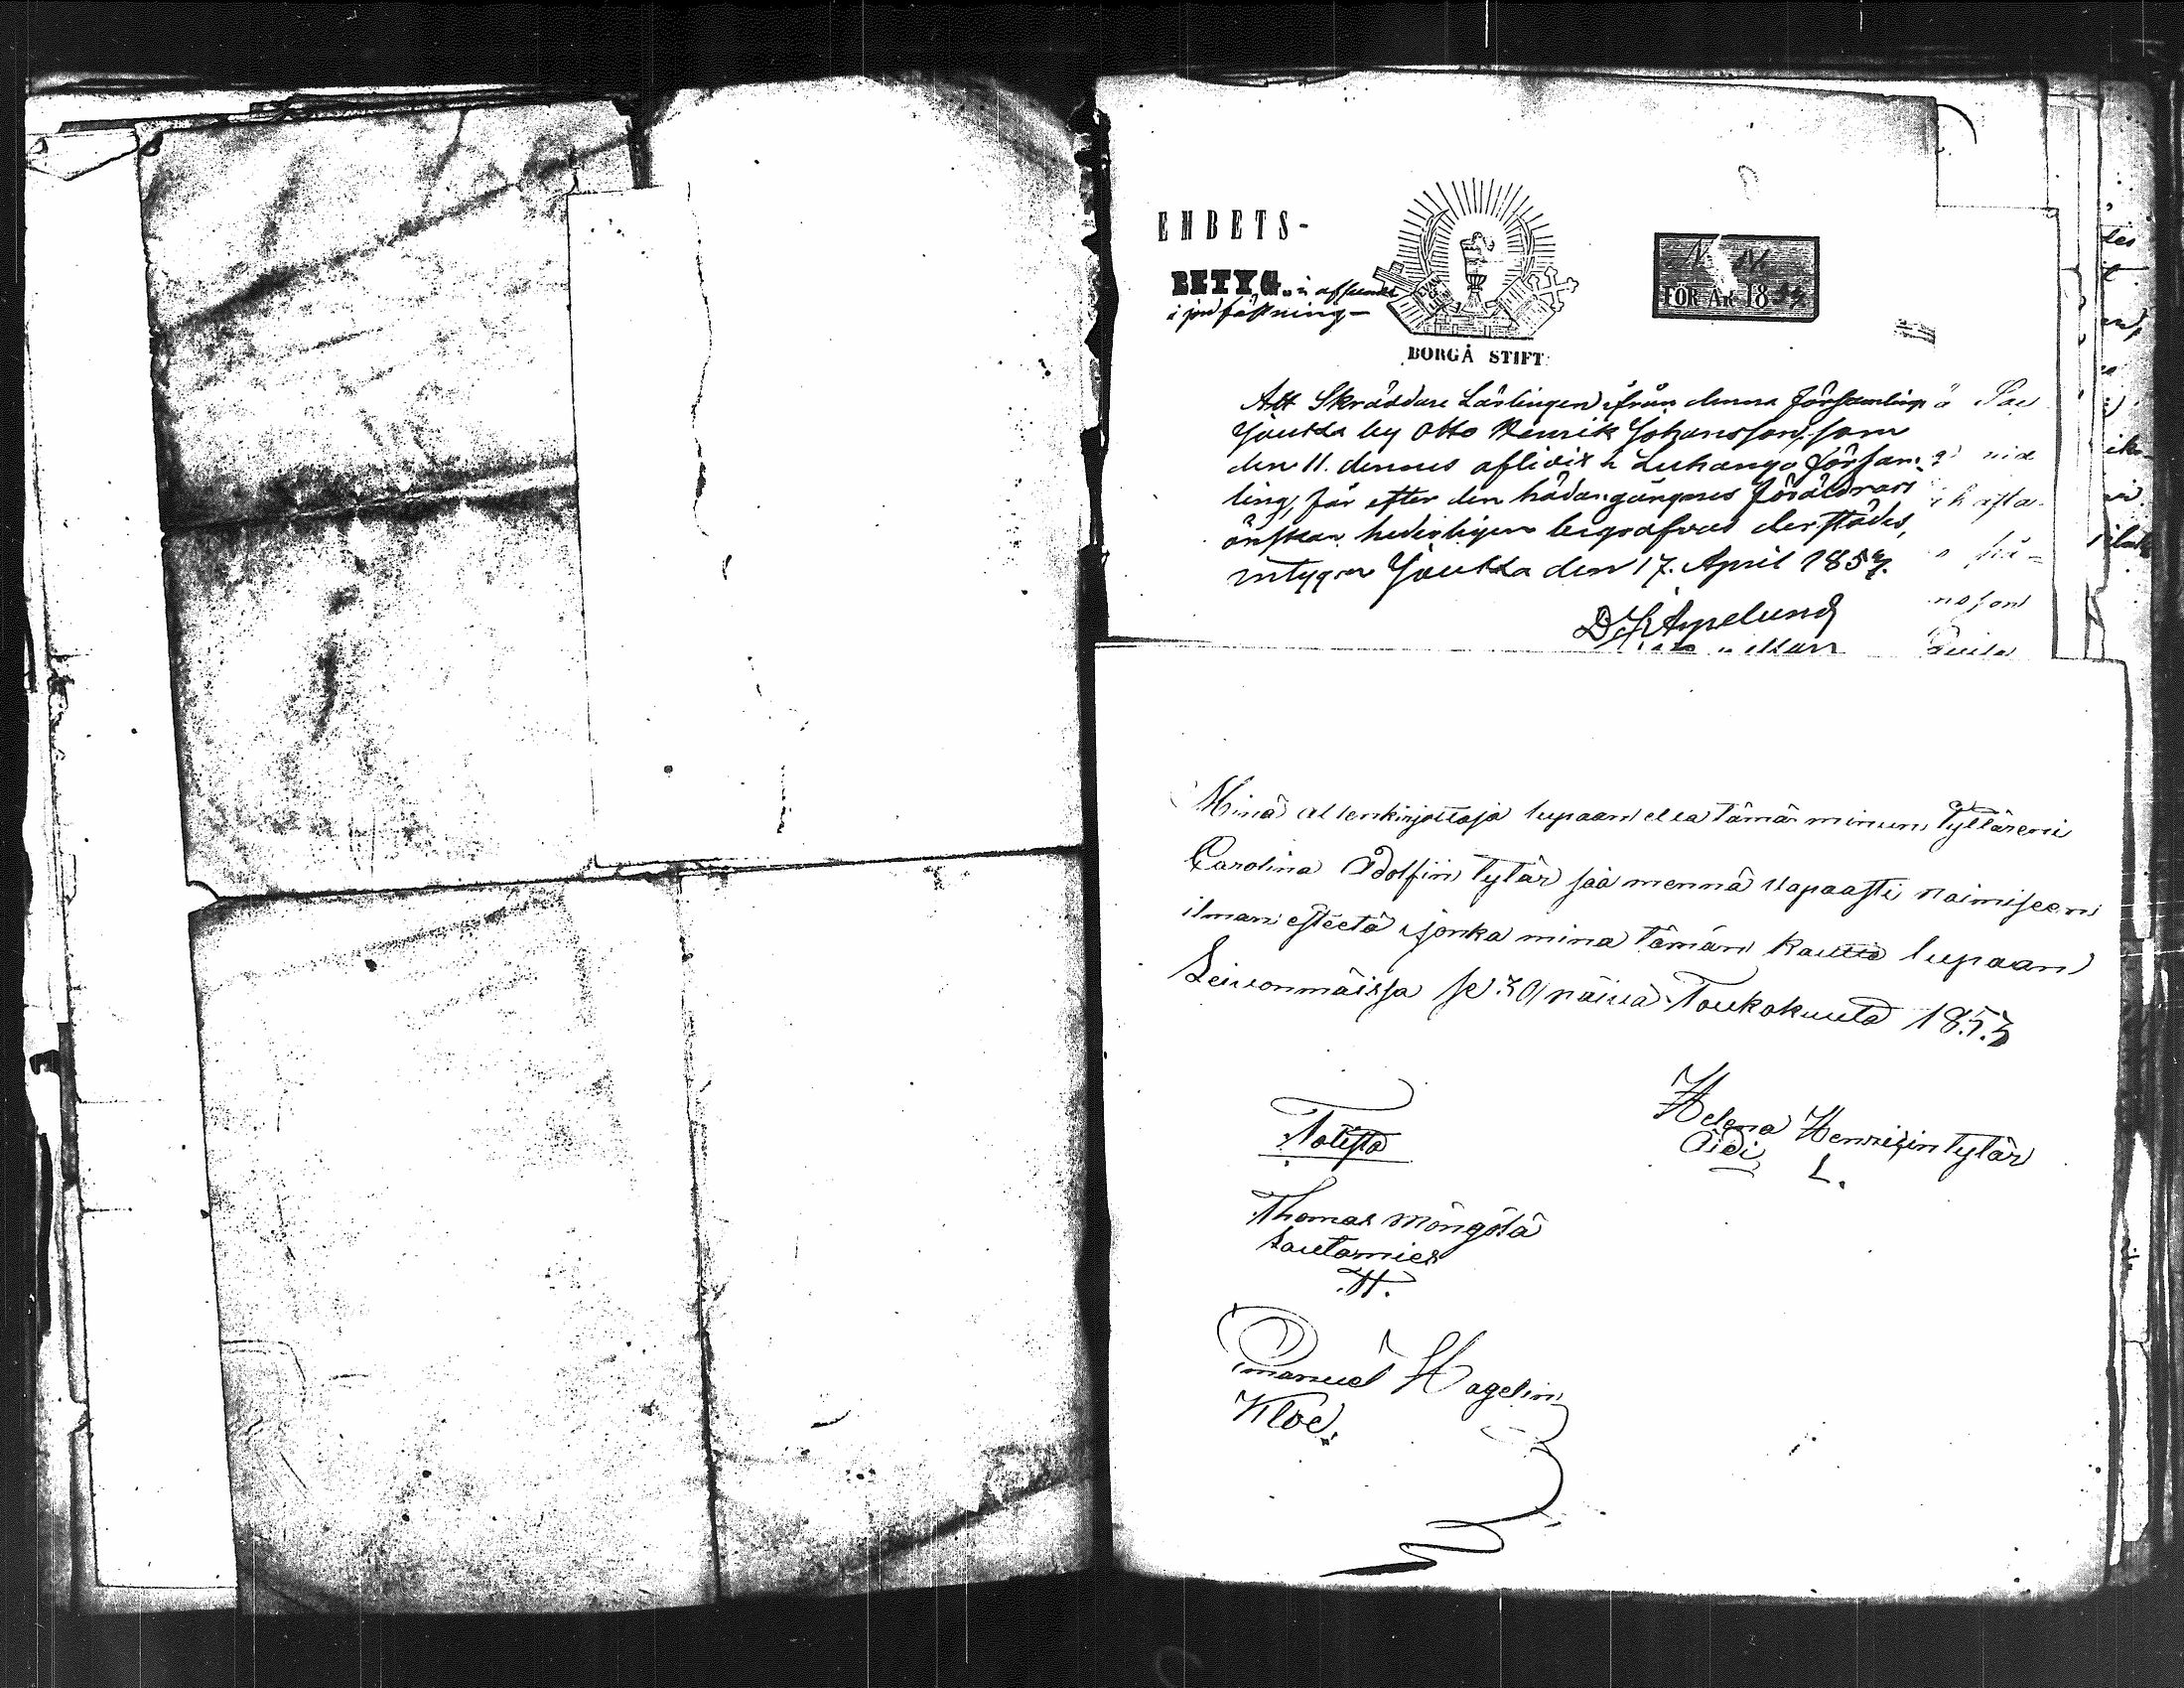 EMBETS-
BETYG. i afseende
i jordfästning-
BORGÅ STIFT.
FÖR ÅR 18
Att Skräddare Lärlingen ifrån denna församling
Joutsa by Otto Henrik Johansson, som
den 11. dennes aflidit i Luhango Försam-
ling, får efter den hädangångnes föräldrars
önskan hederligen begrafvas derstädes,
intygar Joutsa den 17. April 1857.
Minä allenkirjottaja lupaan etta tämä minun Tyttäreni
Carolina Adolfin tytär saa mennä vapaasti naimiseen
ilman esteetä jonka minä tämän kautta lupaan
Leivonmäissä se 30 päivä Toukokuuta 1853
Helena Henrikin tytär
Äidi
L.
Todista
Thomas Möngölä
Lautamies
Emanuel Hagelin